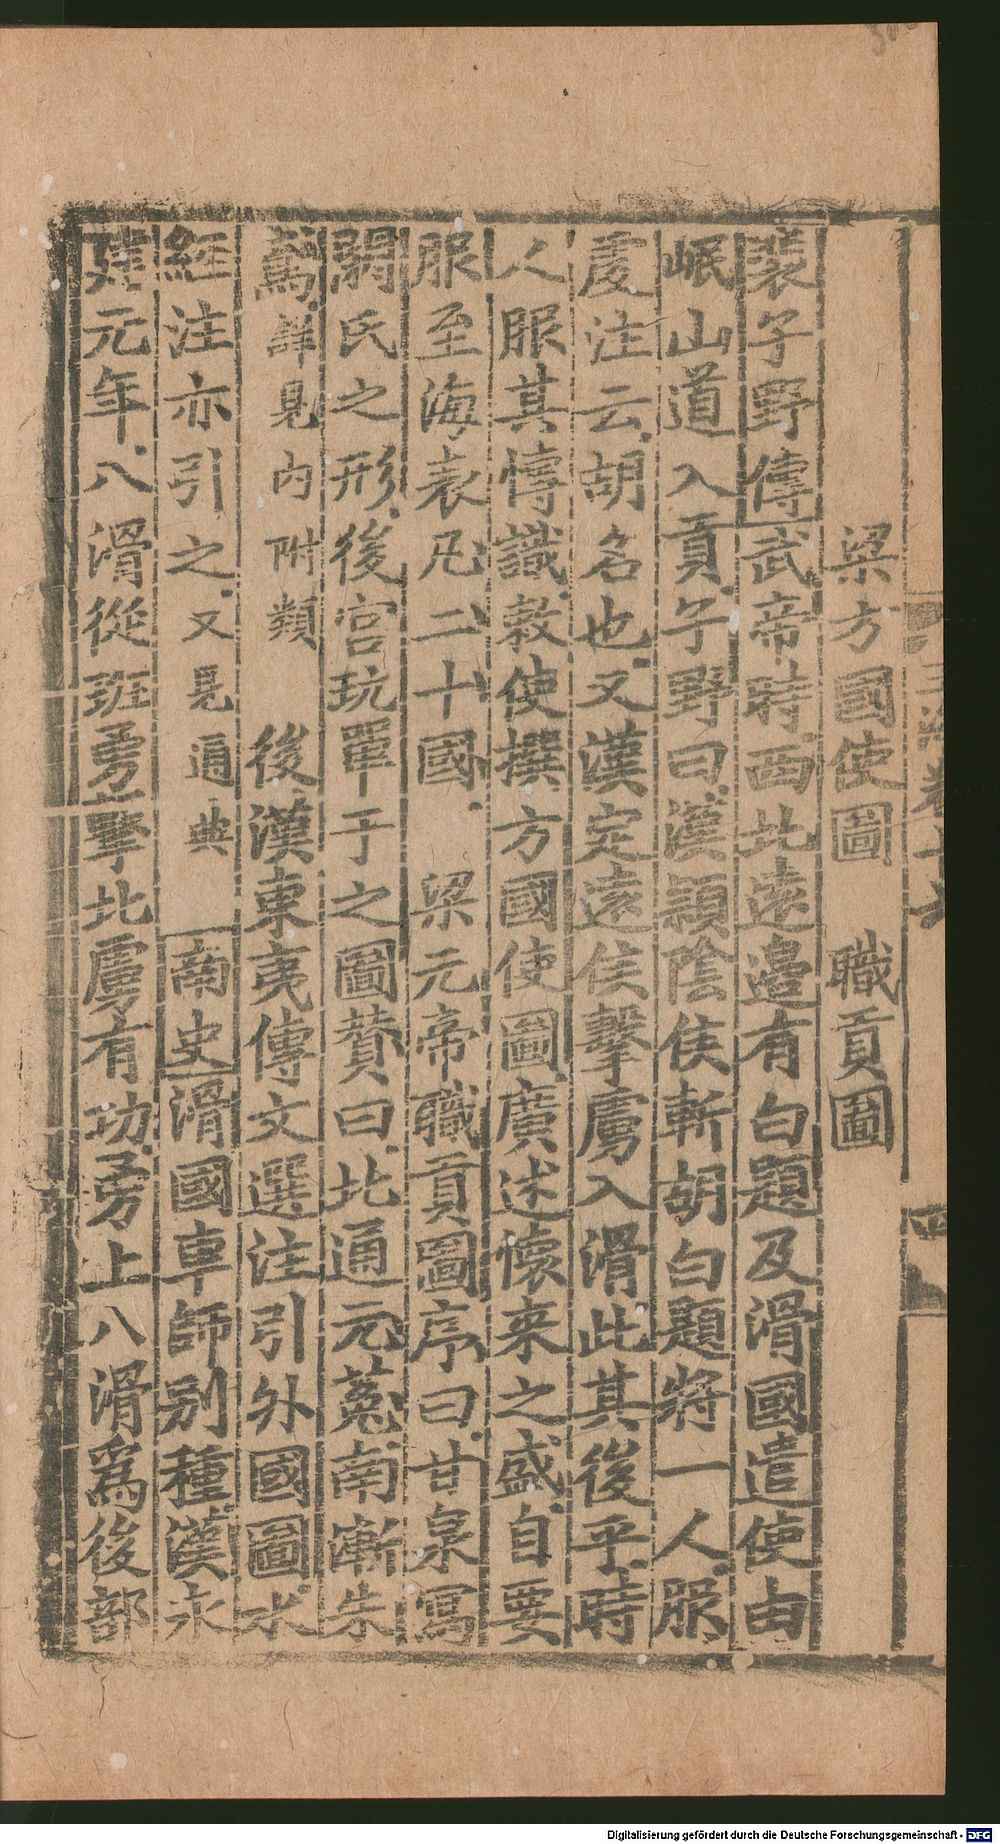 梁方國使圖　職貢圖
裴子野傳武帝時西北遠邊有白題及滑國遣使由
岷山道入貢子野曰漢潁陰侯斬胡白題將一人服
虔注云胡名也又漢定遠侯擊虜入滑此其後乎時
人服其博識敕使撰方國使圖廣述懷來之盛自要
服至海表凡二十國　梁元帝職貢圖序曰甘泉寫
閼氏之形後宮玩單于之圖贊曰北通元菟南漸朱
鳶詳見內附類　後漢東夷傳文選注引外國圖水
經注亦引之又見通典　南史滑國車師別種漢永
建元年八滑從班勇擊北虜有功勇上八滑爲後部
四
Digitalisierung gefördert durch die Deutsche Forschungsgemeinschaft - DFG